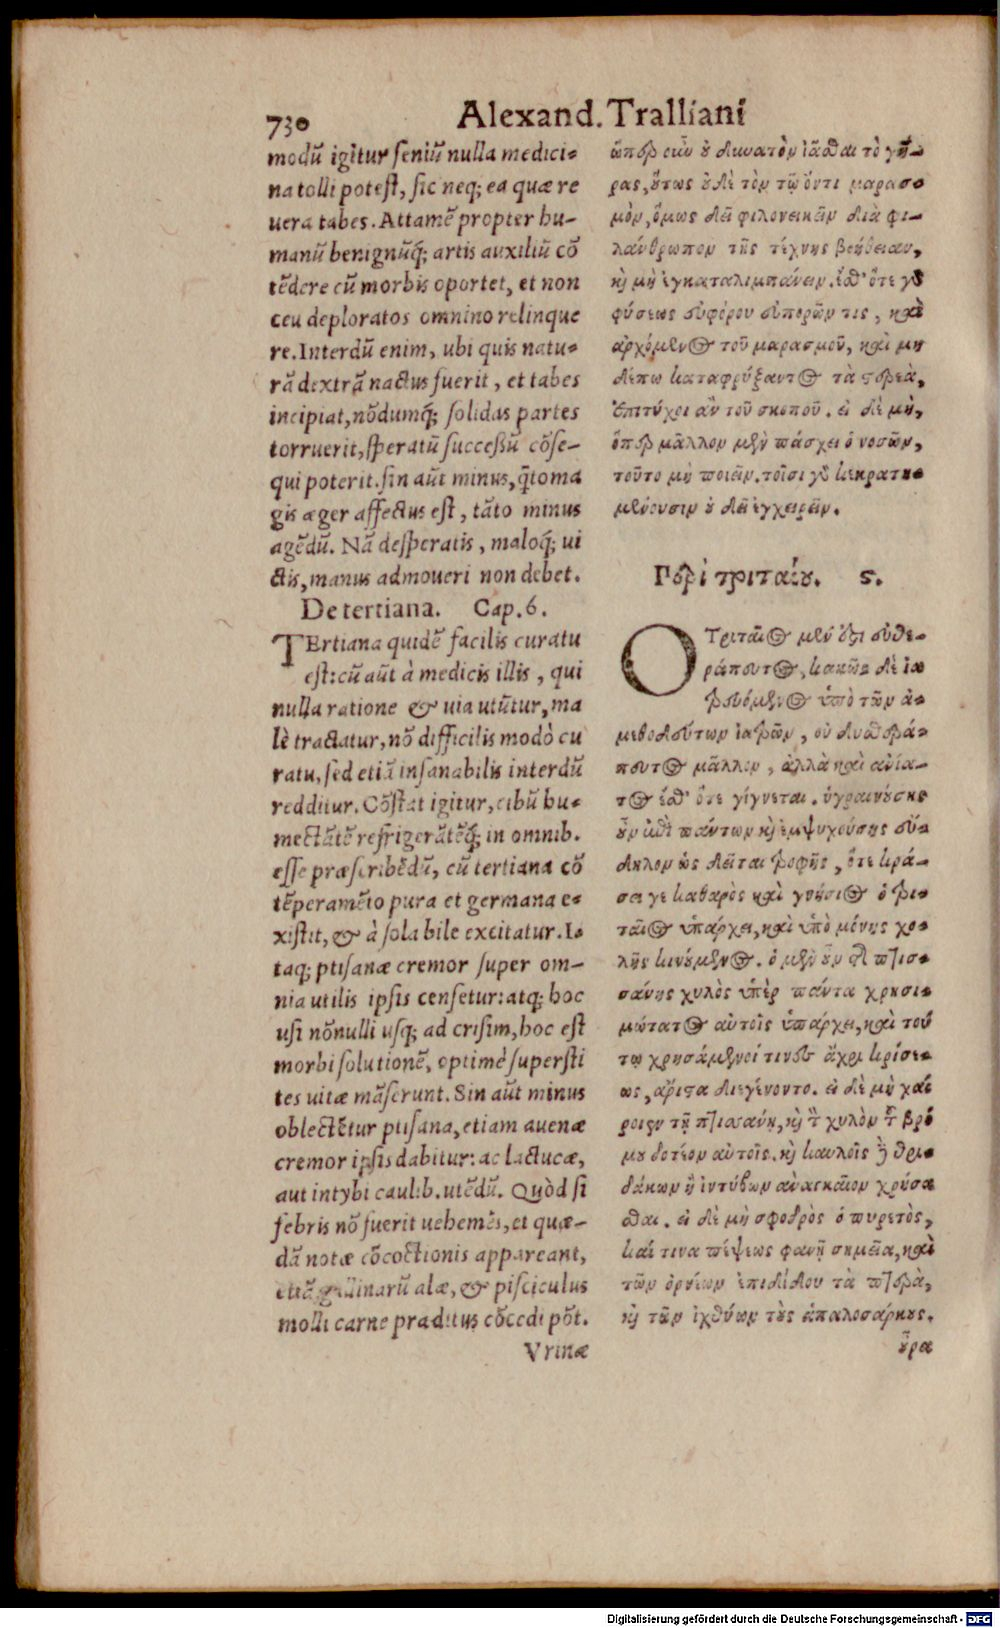 730
Alexand. Tralliani
modũ igitur seniũ nulla medici-
na tolli potest, sic neq; ea quæ re
uera tabes. Attamẽ propter hu-
manũ benignũq́; artis auxiliũ cõ
tẽdere cũ morbis oportet, et non
ceu deploratos omnino relinque
re. Interdũ enim, ubi quis natu-
rã dextrã nactus fuerit, et tabes
incipiat, nõdumq́; solidas partes
torruerit, speratũ successũ cõse-
qui poterit. sin aũt minus, q̃toma
gis æger affectus est, tãto minus
agẽdũ. Nã desperatis, maloq́; ui
ctis, manus admoueri non debet.
De tertiana. Cap. 6.
TErtiana quidẽ facilis curatu
est: cũ aũt à medicis illis, qui
nulla ratione & uia utũtur, ma
lè tractatur, nõ difficilis modò cu
ratu, sed etiã insanabilis interdũ
redditur. Cõstat igitur, cibũ hu-
mectãtẽ refrigerãtẽq́; in omnib.
esse præscribẽdũ, cũ tertiana cõ
tẽperamẽto pura et germana e-
xistit, & à sola bile excitatur. I-
taq; ptisanæ cremor super om-
nia utilis ipsis censetur: atq; hoc
usi nõnulli usq; ad crisim, hoc est
morbi solutionẽ, optimè supersti
tes uitæ mãserunt. Sin aũt minus
oblectẽtur ptisana, etiam auenæ
cremor ipsis dabitur: ac lactucæ,
aut intybi caulib. utẽdũ. Quòd si
febris nõ fuerit uehemẽs, et quæ-
dã notæ cõcoctionis appareant,
etiã gallinarũ alæ, & pisciculus
molli carne præditus cõcedi põt.
Vrinæ
ὥπερ οὖν οὐ δυνατὸν ἰᾶσθαι τὸ γῆ-
ρας, οὕτως οὐδὲ τὸν τῷ ὄντι μαρασ
μὸν, ὅμως δεῖ φιλονεικεῖν διὰ φι-
λάνθρωπον τῆς τέχνης βοήθειαν,
καὶ μὴ ἐγκαταλιμπάνειν. ἐσθ' ὅτε γὰρ
φύσεως εὐφόρου εὐπορῶν τις, καὶ
ἀρχόμενος τοῦ μαρασμοῦ, καὶ μη
δέπω καταφρύξαντος τὰ στερεὰ,
ἐπιτύχοι ἂν τοῦ σκοποῦ. εἰ δὲ μὴ,
ὅπερ μᾶλλον μὲν πάσχει ὁ νοσῶν,
τοῦτο μὴ ποιεῖν. τοῖσι γὰρ κεκρατη-
μένουσιν οὐ δεῖ ἐγχειρεῖν.
Περὶ τριταίου. ϛ.
Ο Τριταῖος μὲν ἐστὶ εὐθε-
ράπευτος, κακῶς δὲ ἰα
τρευόμενος ὑπὸ τῶν ἀ-
μεθοδεύτων ἰατρῶν, οὐ δυσθερά-
πευτος μᾶλλον, ἀλλὰ καὶ ἀνία-
τος ἐσθ' ὅτε γίγνεται. ὑγραινούσης
οὖν ἐπὶ πάντων καὶ ἐμψυχούσης εὔ-
δηλον ὡς δεῖται τροφῆς, ὅτε κρά-
σει γε καθαρὸς καὶ γνήσιος ὁ τρι-
ταῖος ὑπάρχει, καὶ ὑπὸ μόνης χο-
λῆς κινούμενος. ὁ μὲν οὖν τῆς πτισ-
σάνης χυλὸς ὑπὲρ πάντα χρησι-
μώτατος αὐτοῖς ὑπάρχει, καὶ τού
τῳ χρησάμενοί τινες ἄχρι κρίσε-
ως, ἄριστα διεγένοντο. εἰ δὲ μὴ χαί
ροιεν τῇ πτισσάνῃ, καὶ τὸν χυλὸν τοῦ βρό
μου δοτέον αὐτοῖς. καὶ καυλοῖς τῶν θρι-
δάκων ἢ ἰντύβων ἀναγκαῖον χρῆσ
θαι. εἰ δὲ μὴ σφοδρὸς ὁ πυρετὸς,
καί τινα πέψεως φανῇ σημεῖα, καὶ
τῶν ὀρνίων ἐπιδίδου τὰ πτερὰ,
καὶ τῶν ἰχθύων τοὺς ἁπαλοσάρκους.
οὖρα
Digitalisierung gefördert durch die Deutsche Forschungsgemeinschaft - DFG